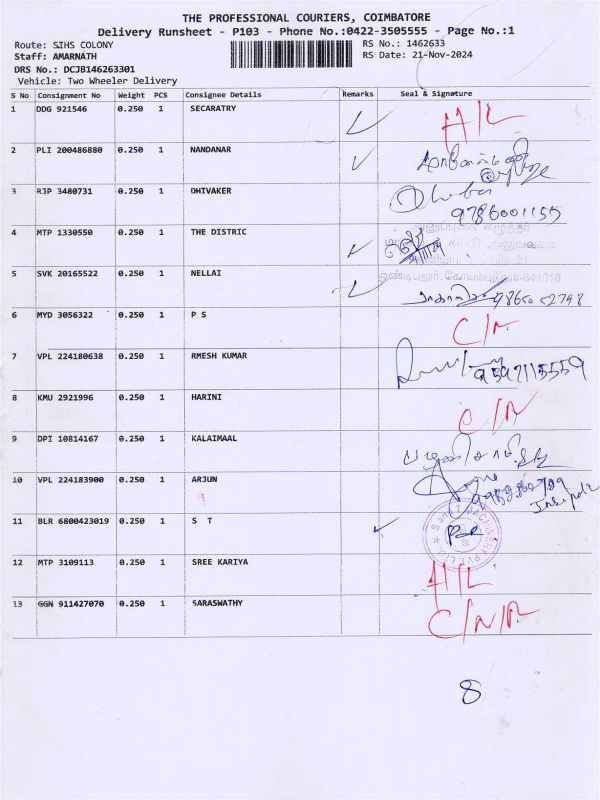 THE PROFESSIONAL COURIERS, COIMBATORE
Delivery Runsheet - P103 - Phone No.:0422-3505555 - Page No.:1
Route: SIHS COLONY RS No.: 1462633
Staff: AMARNATH RS Date: 21-Nov-2024
DRS No.: DCJB146263301
Vehicle: Two Wheeler Delivery
S No Consignment No Weight PCS Consignee Details Remarks Seal & Signature
1 DDG 921546 0.250 1 SECARATRY
2 PLI 200486880 0.250 1 NANDANAR
3 RJP 3480731 0.250 1 DHIVAKER
9786001155
4 MTP 1330550 0.250 1 THE DISTRIC
5 SVK 20165522 0.250 1 NELLAI
6 MYD 3056322 0.250 1 P S
7 VPL 224180638 0.250 1 RMESH KUMAR
8 KMU 2921996 0.250 1 HARINI
9 DPI 10814167 0.250 1 KALAIMAAL
10 VPL 224183900 0.250 1 ARJUN
11 BLR 6800423019 0.250 1 S T
12 MTP 3109113 0.250 1 SREE KARIYA
13 GGN 911427070 0.250 1 SARASWATHY
8